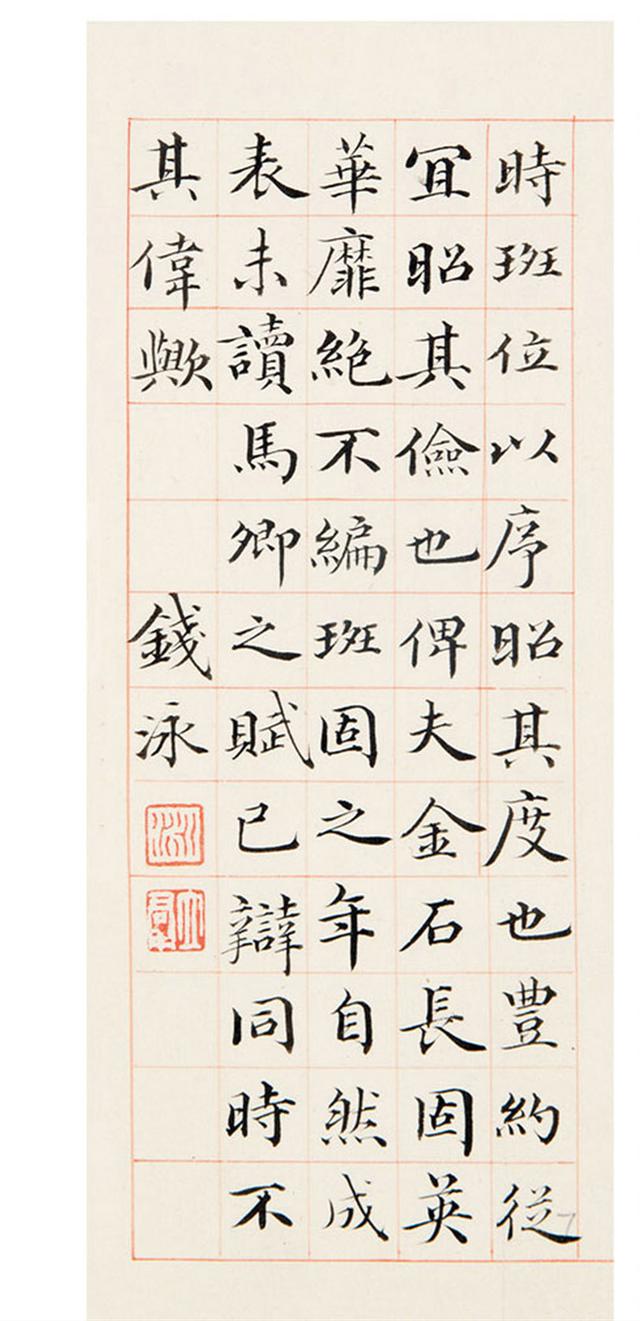 時班位以序昭其度也豊約從
冝昭其儉也俾夫金石長固英
華靡絶不編班固之年自然成
表未讀馬卿之賦已辯同時不
其偉歟 錢泳